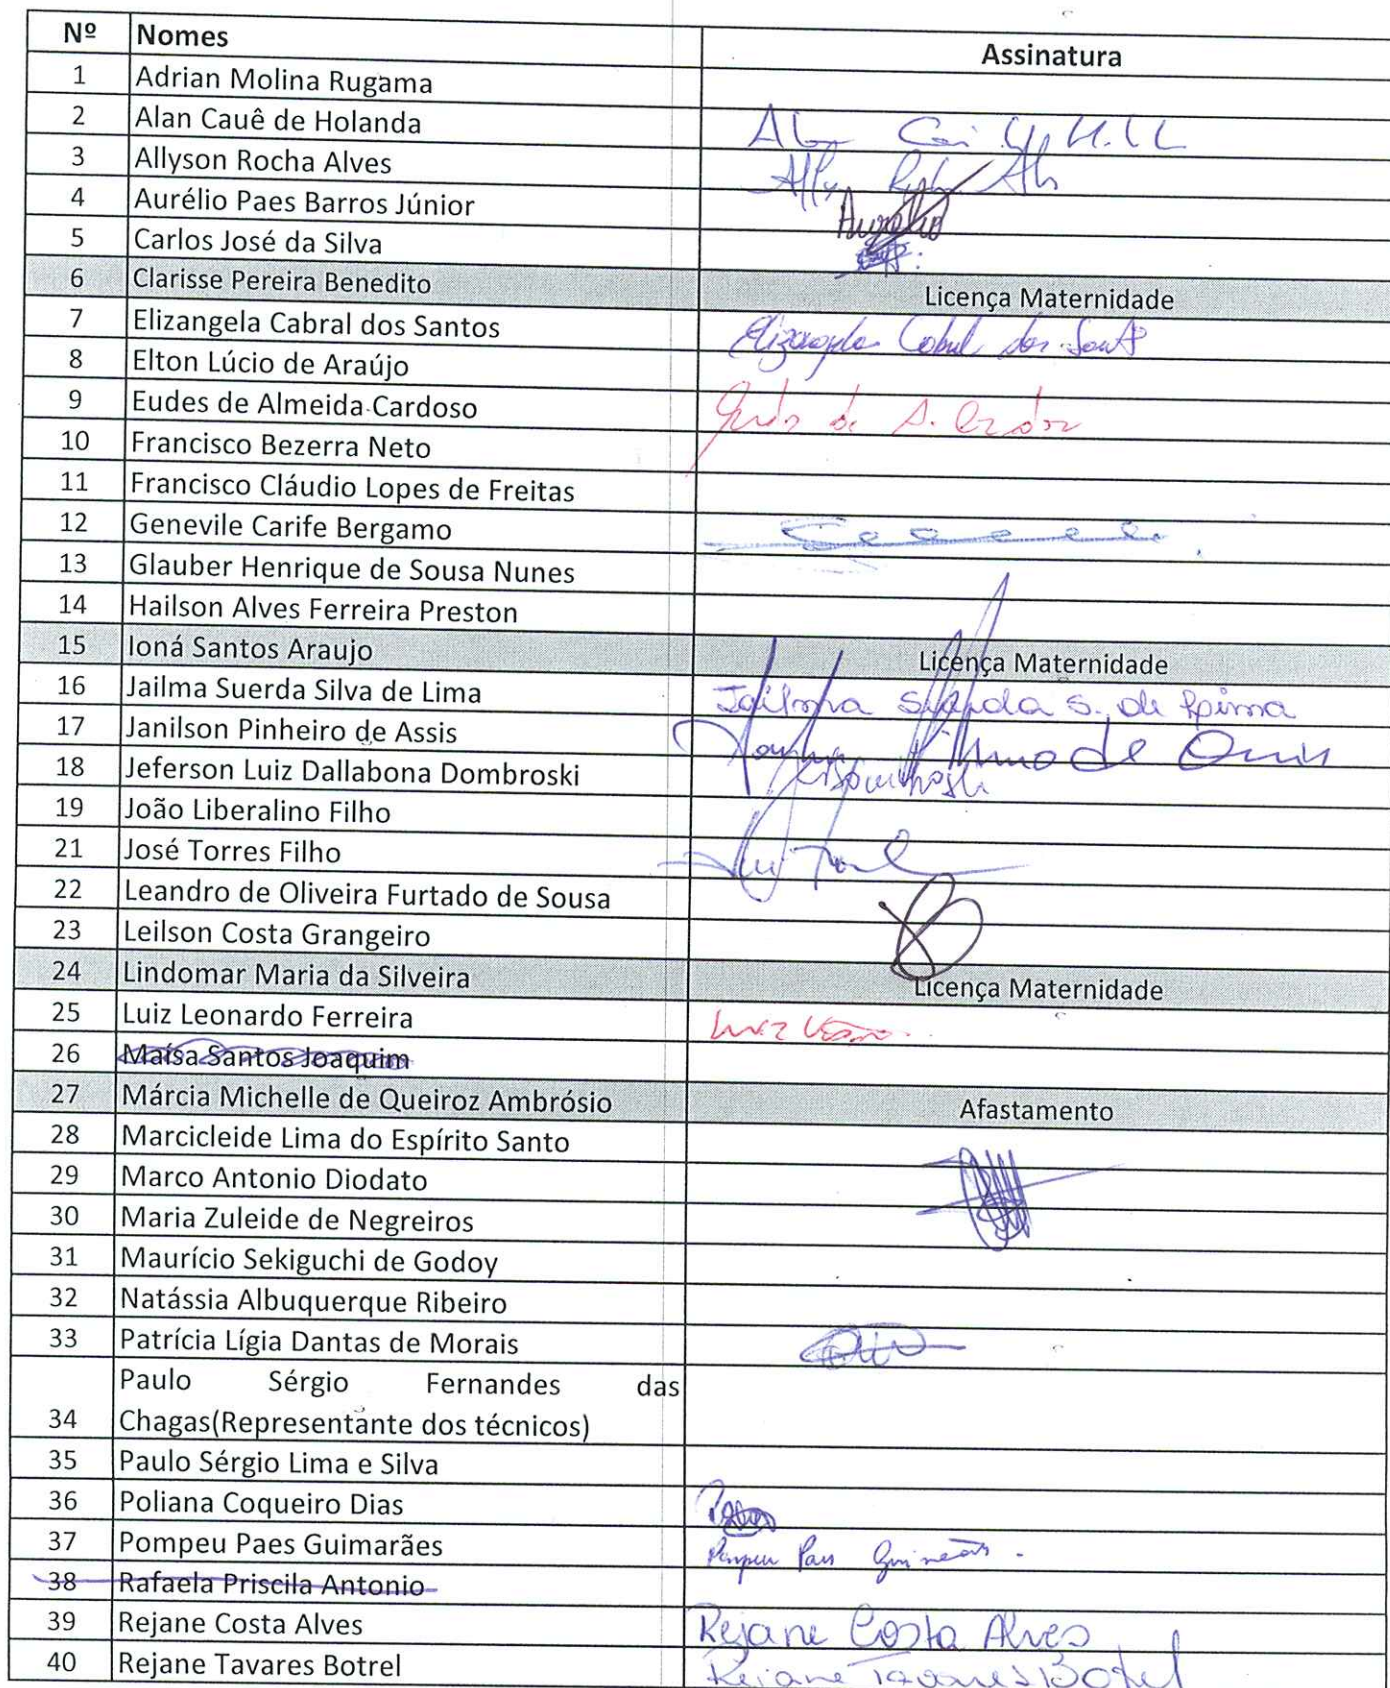 Nº Nomes Assinatura
1 Adrian Molina Rugama
2 Alan Cauê de Holanda
3 Allyson Rocha Alves
4 Aurélio Paes Barros Júnior Aurélio
5 Carlos José da Silva
6 Clarisse Pereira Benedito Licença Maternidade
7 Elizangela Cabral dos Santos Elizangela Cabral dos Santos
8 Elton Lúcio de Araújo
9 Eudes de Almeida Cardoso
10 Francisco Bezerra Neto
11 Francisco Cláudio Lopes de Freitas
12 Genevile Carife Bergamo
13 Glauber Henrique de Sousa Nunes
14 Hailson Alves Ferreira Preston
15 Ioná Santos Araujo Licença Maternidade
16 Jailma Suerda Silva de Lima Jailma Suerda S. de Lima
17 Janilson Pinheiro de Assis
18 Jeferson Luiz Dallabona Dombroski
19 João Liberalino Filho
21 José Torres Filho
22 Leandro de Oliveira Furtado de Sousa
23 Leilson Costa Grangeiro
24 Lindomar Maria da Silveira Licença Maternidade
25 Luiz Leonardo Ferreira Luiz
26 Maísa Santos Joaquim
27 Márcia Michelle de Queiroz Ambrósio Afastamento
28 Marcicleide Lima do Espírito Santo
29 Marco Antonio Diodato
30 Maria Zuleide de Negreiros
31 Maurício Sekiguchi de Godoy
32 Natássia Albuquerque Ribeiro
33 Patrícia Lígia Dantas de Morais
Paulo Sérgio Fernandes das
34 Chagas(Representante dos técnicos)
35 Paulo Sérgio Lima e Silva
36 Poliana Coqueiro Dias
37 Pompeu Paes Guimarães Pompeu Paes Guimarães.
38 Rafaela Priscila Antonio
39 Rejane Costa Alves Rejane Costa Alves
40 Rejane Tavares Botrel Rejane Tavares Botrel